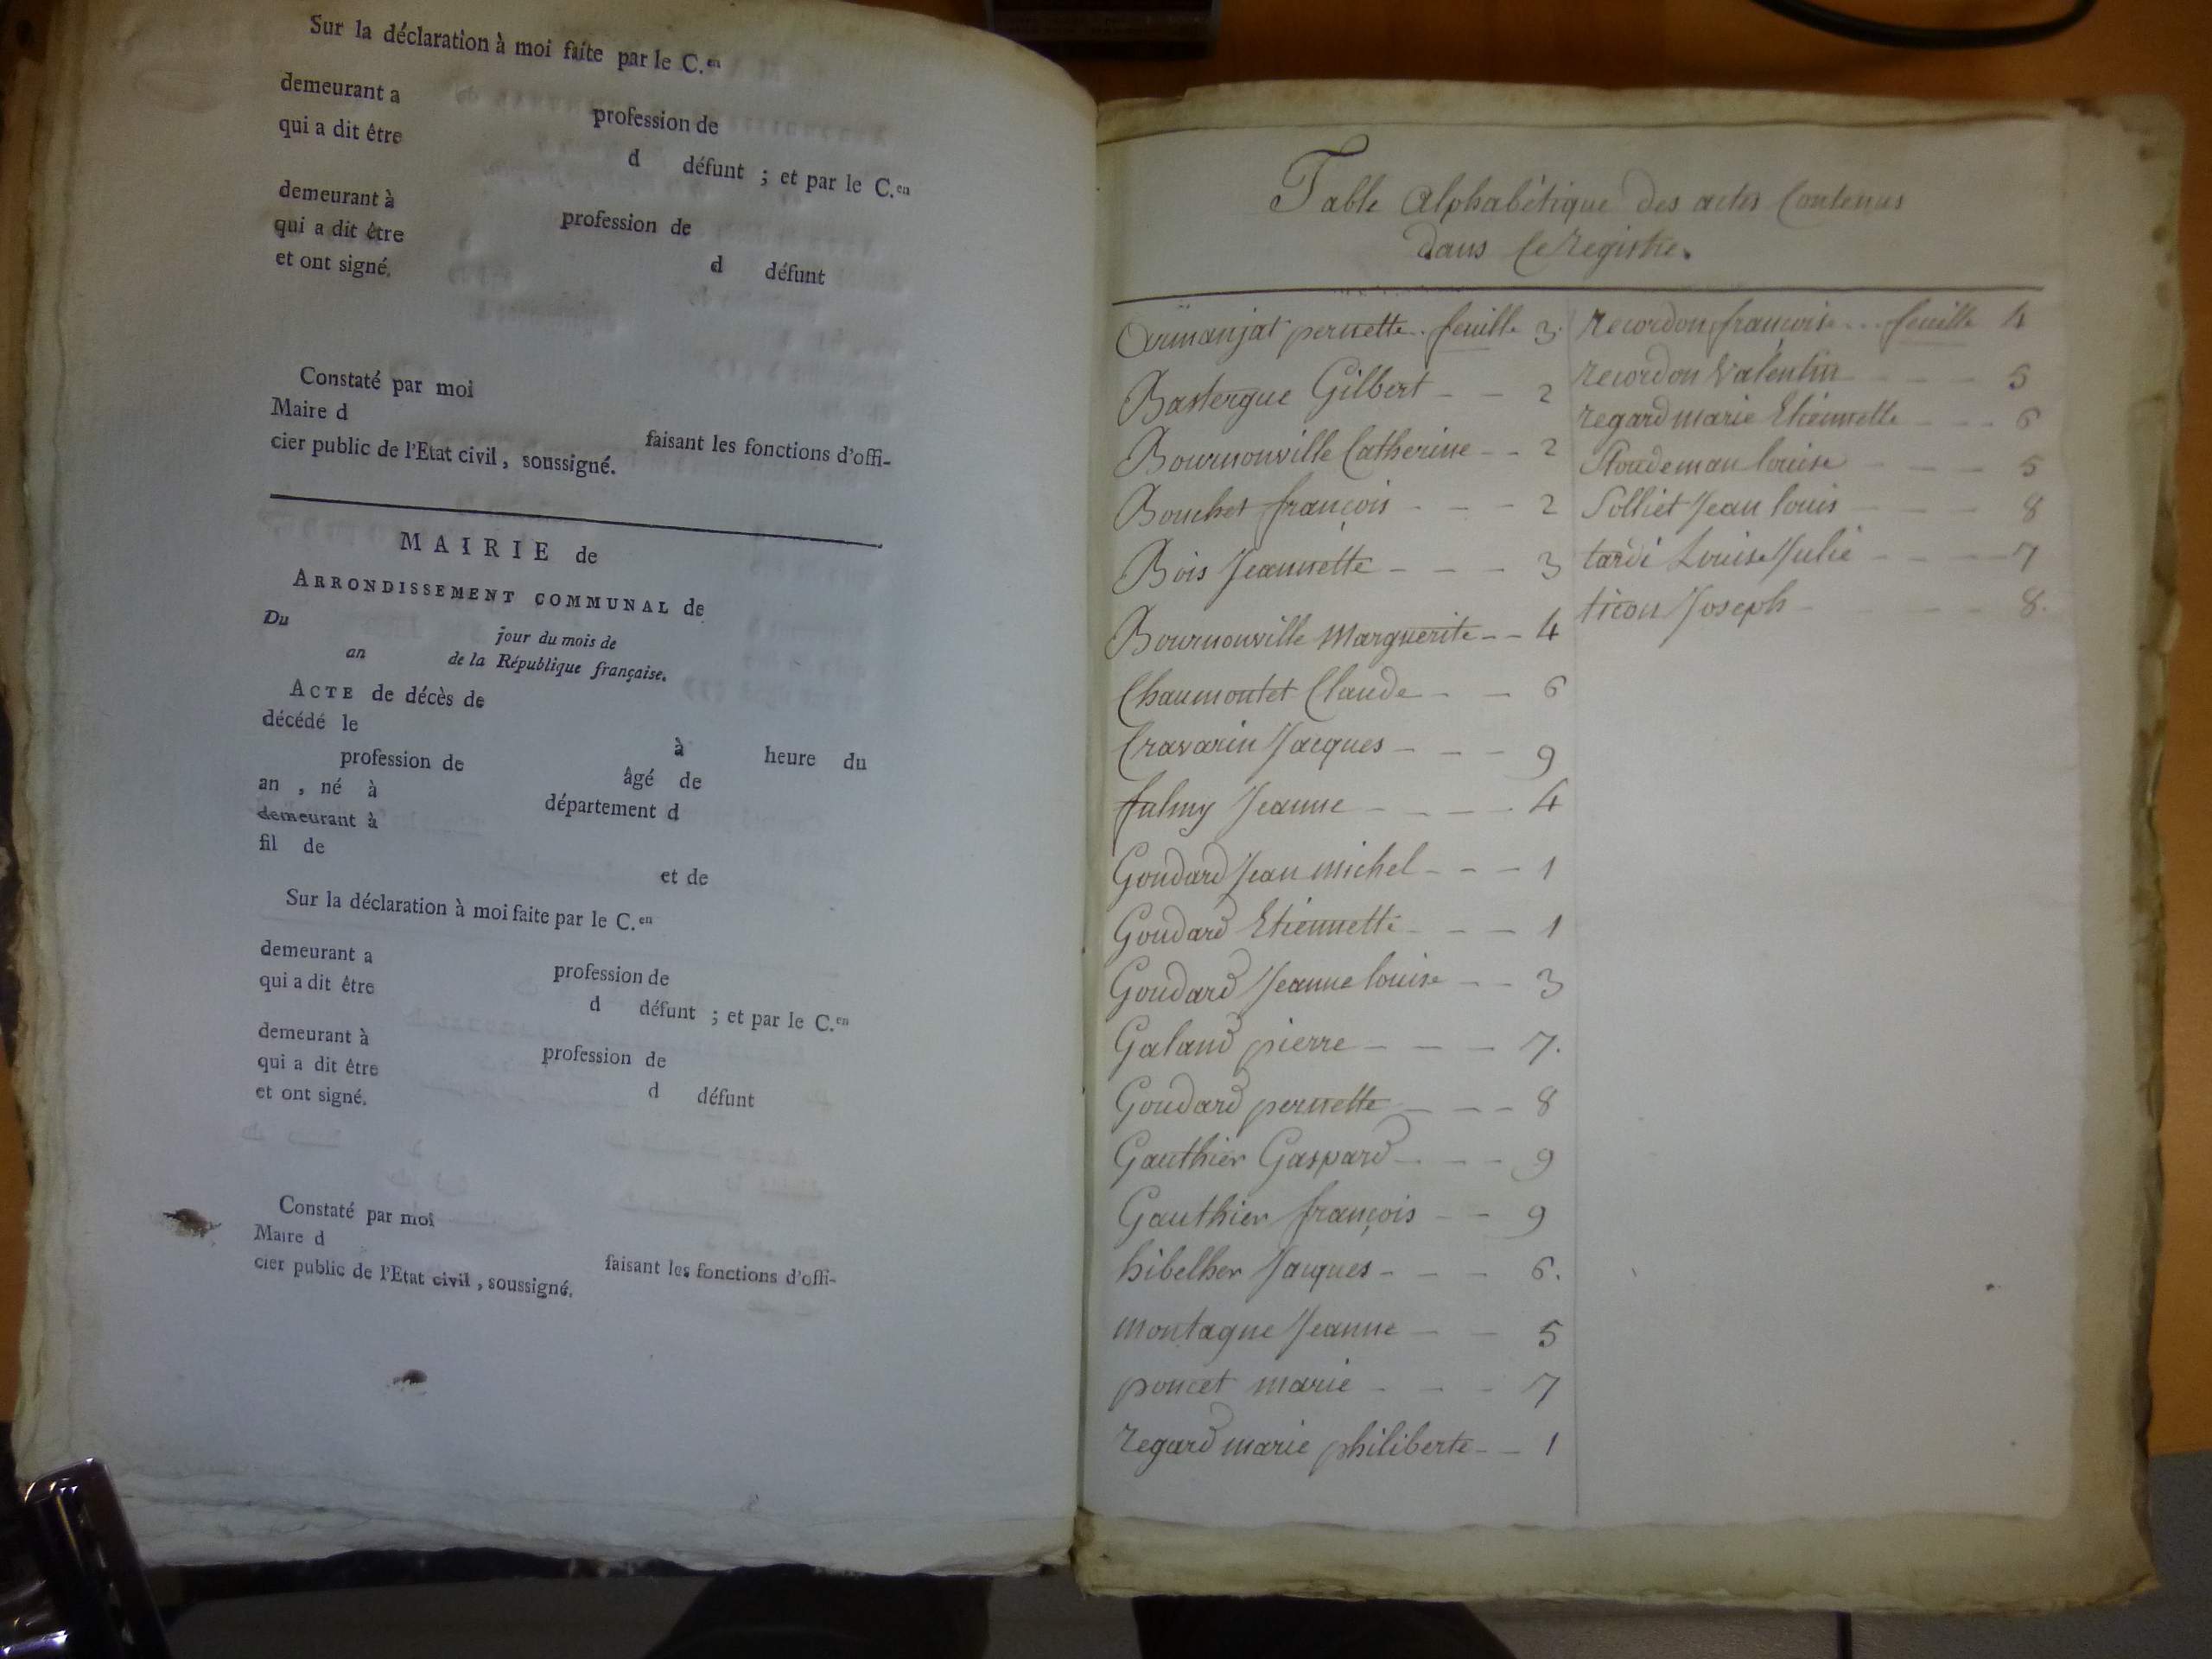 Sur la déclaration à moi faite par le C.en
demeurant a
profession de
qui a dit être
d défunt ; et par le C.en
demeurant à
profession de
qui a dit être
d défunt
et ont signé.
Constaté par moi
Maire d
faisant les fonctions d'offi-
cier public de l'Etat civil, soussigné.
MAIRIE de
ARRONDISSEMENT COMMUNAL de
Du
jour du mois de
an de la République française.
ACTE de décès de
décédé le
à heure du
profession de
âgé de
an , né à
département d
demeurant à
fil de
et de
Sur la déclaration à moi faite par le C.en
demeurant a
profession de
qui a dit être
d défunt ; et par le C.en
demeurant à
profession de
qui a dit être
d défunt
et ont signé.
Constaté par moi
Maire d
faisant les fonctions d'offi-
cier public de l'Etat civil, soussigné.
Table Alphabétique des actes Contenus
dans ce registre.
Armanjat pernette.. feuille 3.
Bastergue Gilbert - - 2
Bournonville Catherine - - 2
Bouchet françois - - - 2
Bois Jeannette - - - 3
Bournonville Marguerite - - 4
Chaumontet Claude - - 6
Cravarin Jacques - - - 9
falmy Jeanne - - - - 4
Goudard Jean Michel - - - 1
Goudard Etiennette - - - 1
Goudard Jeanne louise - - 3
Galand pierre - - - 7.
Goudard pernette - - - 8
Gauthier Gaspard - - - 9
Gauthier françois - - 9
hibelher Jacques - - - 6.
montagne Jeanne - - 5
poncet marie - - - 7
regard marie philiberte - - 1
recordon françoise ... feuille 4
recordon Valentin - - - 5
regard marie Etiennette - - - 6
Stoudeman louise - - - 5
Solliet Jean louis - - - 8
tardi Louise Julie - - - 7
ticon Joseph - - - 8.